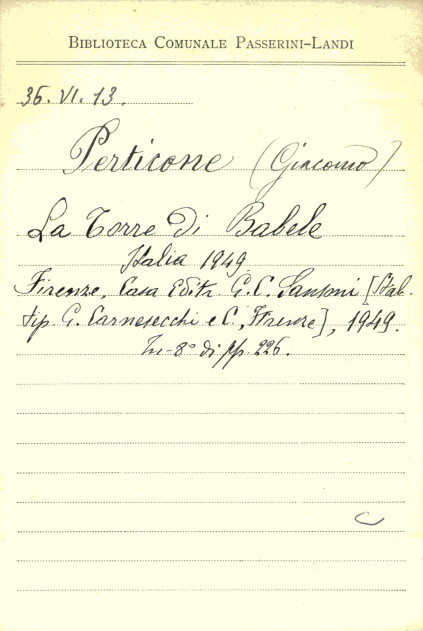 BIBLIOTECA COMUNALE PASSERINI-LANDI
36. VI. 13.
Perticone (Giacomo)
La Torre di Babele
Italia 1949
Firenze, Casa Editr. G. C. Sansoni [Stab.
tip. G. Carnesecchi e C., Firenze], 1949.
In-8° di pp. 226.
C